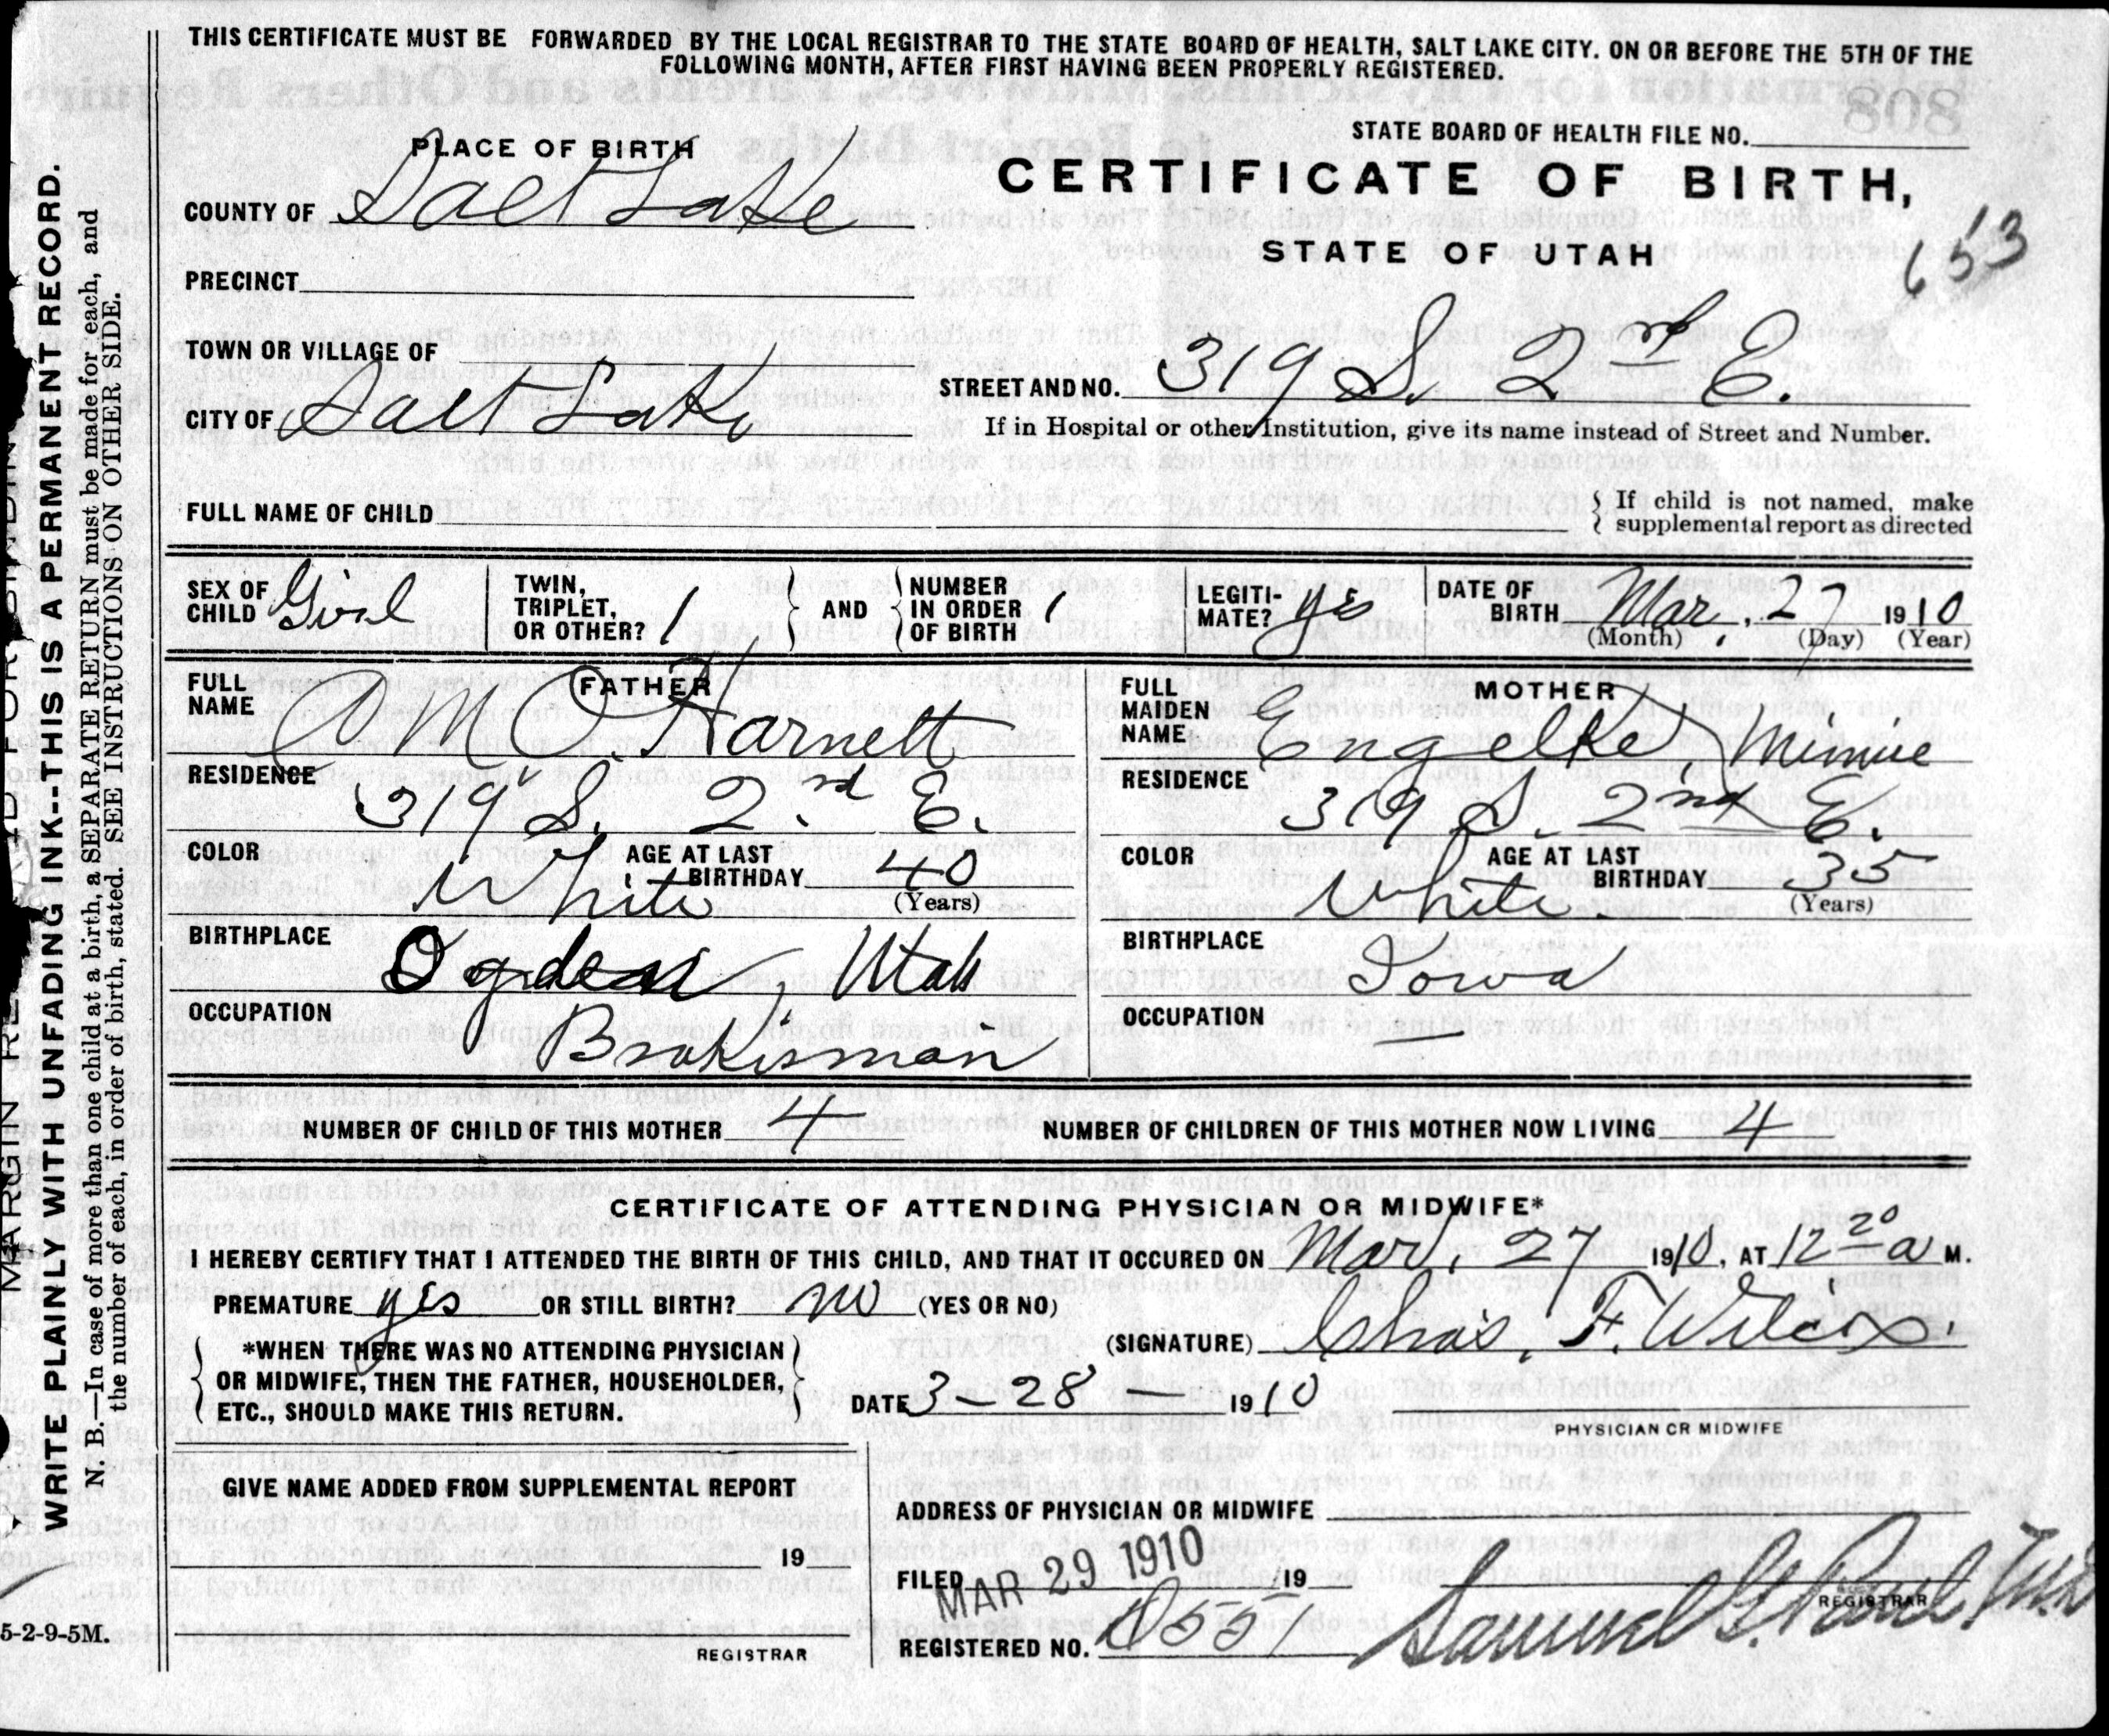 THIS CERTIFICATE MUST BE FORWARDED BY THE LOCAL REGISTRAR TO THE STATE BOARD OF HEALTH, SALT LAKE CITY. ON OR BEFORE THE 5TH OF THE
FOLLOWING MONTH, AFTER FIRST HAVING BEEN PROPERLY REGISTERED.
STATE BOARD OF HEALTH FILE NO.
CERTIFICATE OF BIRTH,
STATE OF UTAH
653
PLACE OF BIRTH
COUNTY OF Salt Lake
PRECINCT
TOWN OR VILLAGE OF
CITY OF Salt Lake
STREET AND NO. 319 S. 2nd E.
If in Hospital or other Institution, give its name instead of Street and Number.
FULL NAME OF CHILD
If child is not named, make
supplemental report as directed
SEX OF CHILD Girl
TWIN, TRIPLET, OR OTHER? 1
AND NUMBER IN ORDER OF BIRTH 1
LEGITI-MATE? yes
DATE OF BIRTH Mar. 27 1910
(Month) (Day) (Year)
FATHER
FULL NAME Harnett
RESIDENCE 319 S. 2nd E.
COLOR White AGE AT LAST BIRTHDAY 40
(Years)
BIRTHPLACE Ogden, Utah
OCCUPATION Brakisman
MOTHER
FULL MAIDEN NAME Engelke, Minnie
RESIDENCE 319 S. 2nd E.
COLOR White. AGE AT LAST BIRTHDAY 35
(Years)
BIRTHPLACE Iowa
OCCUPATION —
NUMBER OF CHILD OF THIS MOTHER 4 NUMBER OF CHILDREN OF THIS MOTHER NOW LIVING 4
CERTIFICATE OF ATTENDING PHYSICIAN OR MIDWIFE*
I HEREBY CERTIFY THAT I ATTENDED THE BIRTH OF THIS CHILD, AND THAT IT OCCURED ON Mar. 27 1910, AT 12 20 a M.
PREMATURE yes OR STILL BIRTH? no (YES OR NO)
*WHEN THERE WAS NO ATTENDING PHYSICIAN
OR MIDWIFE, THEN THE FATHER, HOUSEHOLDER,
ETC., SHOULD MAKE THIS RETURN.
(SIGNATURE) Chas. F. Wilcox.
DATE 3-28- 1910
PHYSICIAN OR MIDWIFE
GIVE NAME ADDED FROM SUPPLEMENTAL REPORT
19
REGISTRAR
ADDRESS OF PHYSICIAN OR MIDWIFE
FILED MAR 29 1910 19
REGISTERED NO. 551
Samuel G. Paul
REGISTRAR
WRITE PLAINLY WITH UNFADING INK--THIS IS A PERMANENT RECORD.
N. B.—In case of more than one child at a birth, a SEPARATE RETURN must be made for each, and
the number of each, in order of birth, stated. SEE INSTRUCTIONS ON OTHER SIDE.
5-2-9-5M.